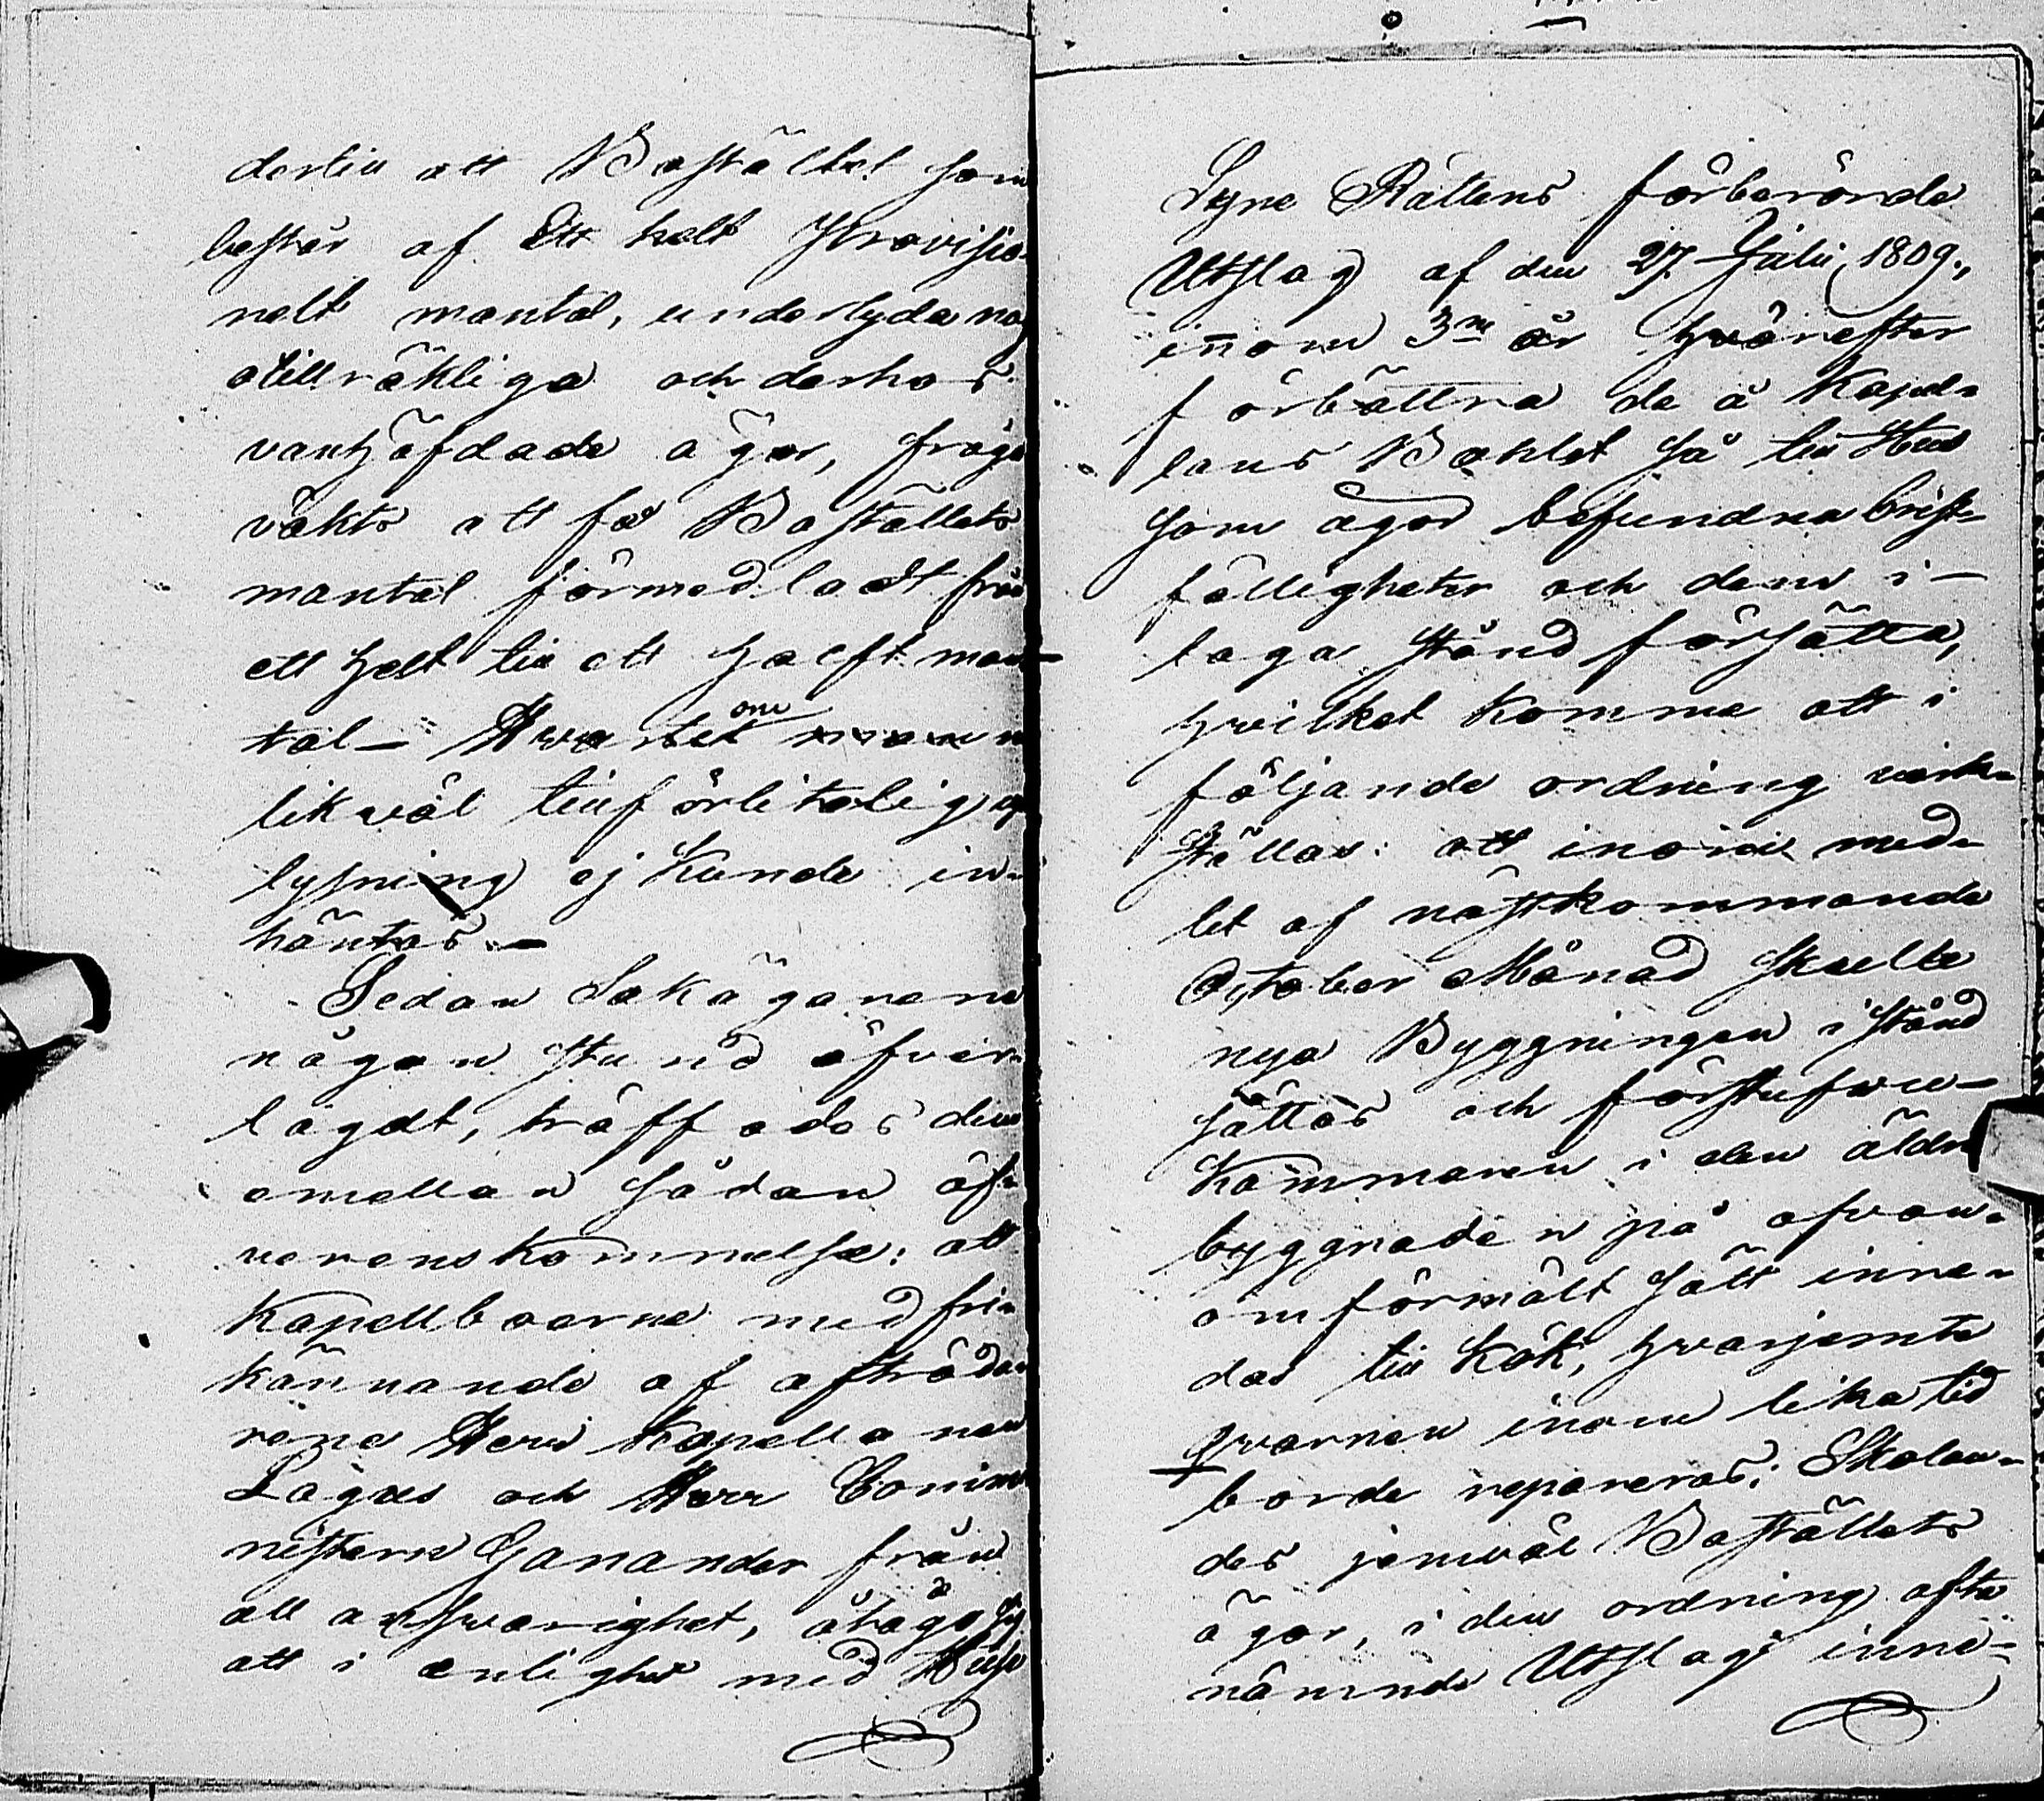 dertill att Bostället som
består af Ett helt Provisio-
nelt mantal, underlyda nog
otillräkliga och derhos
vanhäfdade ägor, fråga
väkts att få Boställets
mantal förmedladt från
ett helt till ett halft man-
tal – Hvartet om
likväl tillförlitelig up-
lysning ej kunde in-
häntas. –
Sedan Sakägarene
någon stund öfver-
lägdt, träffades dem
emellan sådan öf-
verenskommelse: att
Kapellboerne med fri-
kännande af afträda-
rene Herr Kapellanen
Lagus och Herr Commi-
nistern Ganander från
all ansvarighet, åtogo sig
att i enlighet med Huse
Syne Rättens förberörde
Utslag af den 27 Julii 1809.,
inom 3ne år härefter
förbättra de å Kapel-
lans Bohlet så till Hus
som ägor befundna brist-
fälligheter och dem i –
laga stånd försätta,
hvilket komme att i
följande ordning verk-
ställas: att inom med-
let af nästkommande
October Månad skulle
nya Byggningen i stånd
sättas och förstufvu-
kammaren i den äldre
byggnaden på ofvan-
omförmält sätt inre-
das till Kök, hvarjemte
qvarnen inom lika tid
borde repareras; Skolan-
des jemväl Boställets
ägor, i den ordning ofta
nämnde Utslag inne-